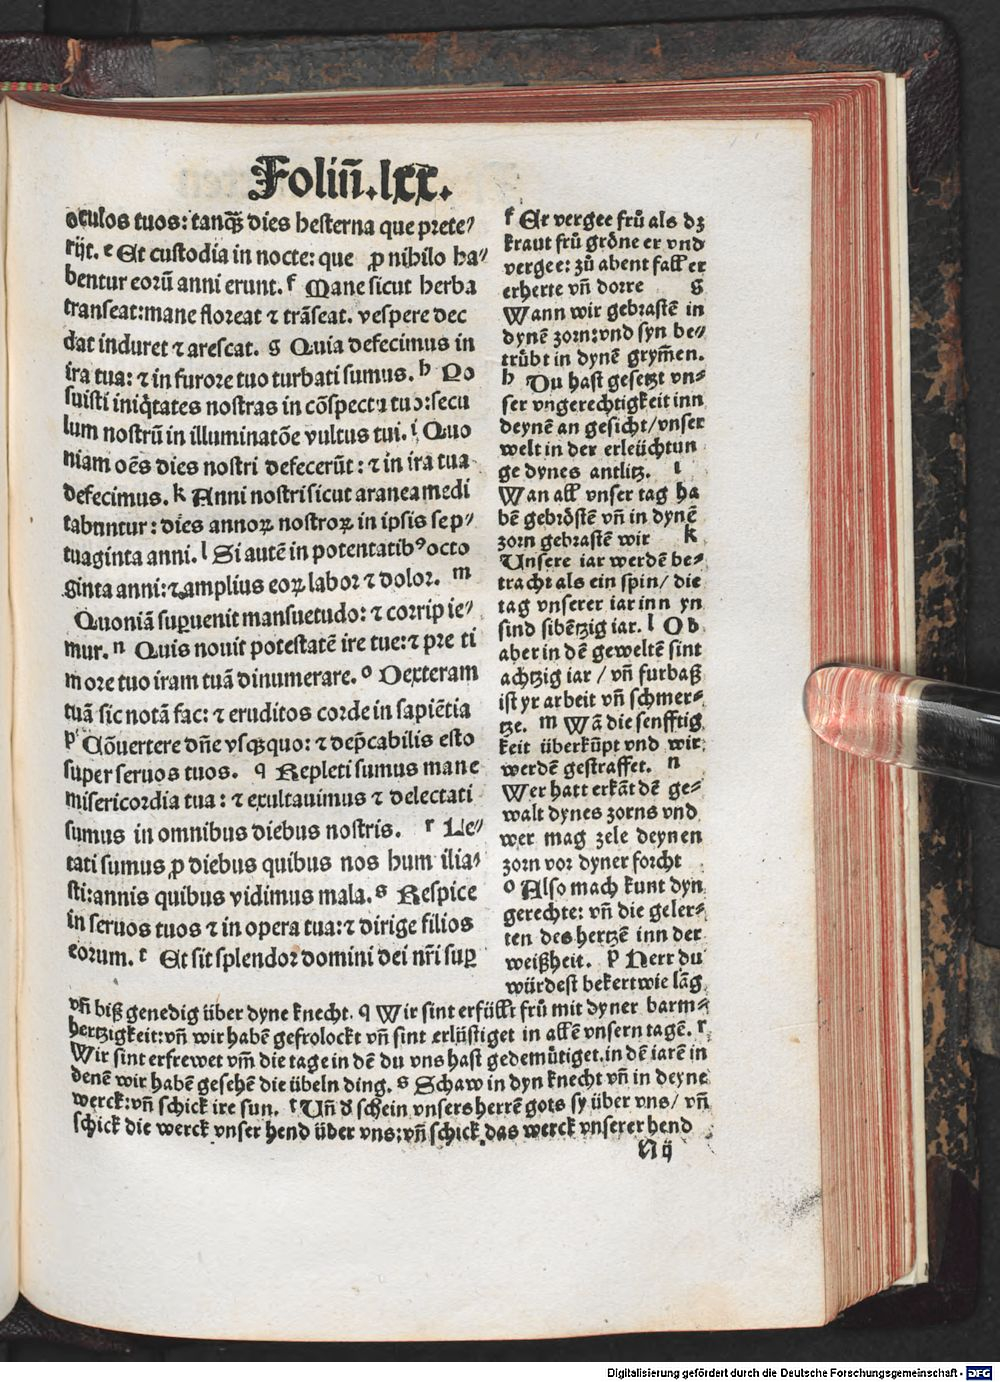 Foliū.lxx.
oculos tuos: tanqꝫ dies hesterna que prete⸗
rijt. e Et custodia in nocte: que ꝓ nihilo ha⸗
bentur eorū anni erunt. f Mane sicut herba
transeat: mane floreat ⁊ trāseat. vespere dec
dat induret ⁊ arescat. g Quia defecimus in
ira tua: ⁊ in furore tuo turbati sumus. h Po
suisti iniq̄tates nostras in cōspectu tuo: secu
lum nostrū in illuminatōe vultus tui. i Quo
niam oēs dies nostri defecerūt: ⁊ in ira tua
defecimus. k Anni nostri sicut aranea medi
tabuntur: dies annoꝝ nostroꝝ in ipsis sep⸗
tuaginta anni. l Si autē in potentatibꝰ octo
ginta anni: ⁊ amplius eoꝝ labor ⁊ dolor. m
Quoniā suꝑuenit mansuetudo: ⁊ corripie⸗
mur. n Quis nouit potestatē ire tue: ⁊ pre ti
more tuo iram tuā dinumerare. o Dexteram
tuā sic notā fac: ⁊ eruditos corde in sapiētia
p Cōuertere dn̄e vsqꝫ quo: ⁊ dep̄cabilis esto
super seruos tuos. q Repleti sumus mane
misericordia tua: ⁊ exultauimus ⁊ delectati
sumus in omnibus diebus nostris. r Le⸗
tati sumus ꝓ diebus quibus nos humilia⸗
sti: annis quibus vidimus mala. s Respice
in seruos tuos ⁊ in opera tua: ⁊ dirige filios
eorum. t Et sit splendor domini dei nr̄i suꝑ
f Er vergee frů als dz
kraut frů gröne er vnd
vergee: zů abent fall er
erherte vn̄ dorre g
Wann wir gebrastē in
dynē zorn: vnd syn be⸗
trůbt in dynē grym̄en.
h Du hast gesetzt vn⸗
ser vngerechtigkeit inn
deynē an gesicht/ vnser
welt in der erleüchtun
ge dynes antlitz. i
Wan all vnser tag ha
bē gebröstē vn̄ in dynē
zorn gebrastē wir k
Unsere iar werdē be⸗
tracht als ein spin/ die
tag vnserer iar inn yn
sind sibētzig iar. l Ob
aber in dē geweltē sint
achtzig iar / vn̄ furbaß
ist yr arbeit vn̄ schmer⸗
tze. m Wā die senfftig
keit überkūpt vnd wir
werdē gestraffet. n
Wer hatt erkāt dē ge⸗
walt dynes zorns vnd
wer mag zele deynen
zorn vor dyner forcht
o Also mach kunt dyn
gerechte: vn̄ die geler⸗
ten des hertzē inn der
weißheit. p Herr du
würdest bekert wie lāg
vn̄ biß genedig über dyne knecht. q Wir sint erfüllt frů mit dyner barm⸗
hertzigkeit: vn̄ wir habē gefrolockt vn̄ sint erlüstiget in allē vnsern tagē. r
Wir sint erfrewet vm̄ die tage in dē du vns hast gedemůtiget. in dē iarē in
denē wir habē gesehē die übeln ding. s Schaw in dyn knecht vn̄ in deyne
werck: vn̄ schick ire sun. t Un̄ d̄ schein vnsers herrē gots sy über vns/ vn̄
schick die werck vnser hend über vns: vn̄ schick das werck vnserer hend
N ij
Digitalisierung gefördert durch die Deutsche Forschungsgemeinschaft - DFG